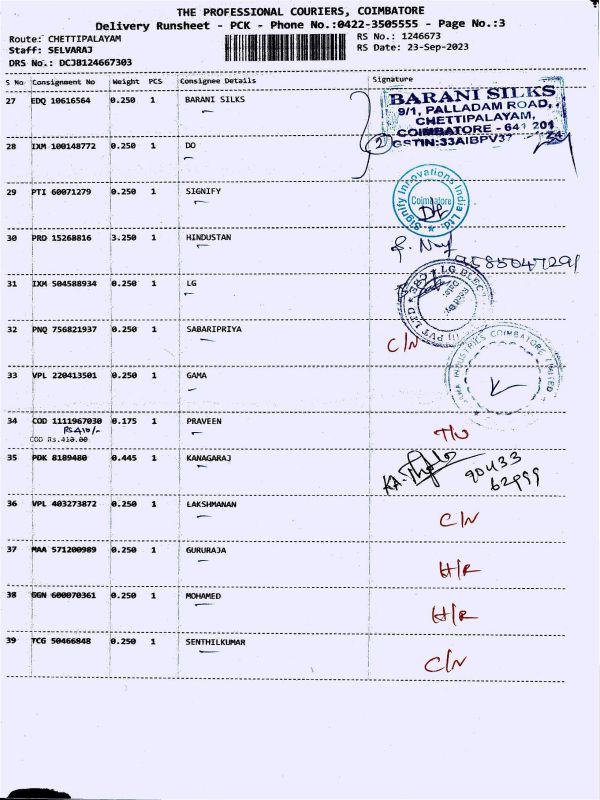 THE PROFESSIONAL COURIERS, COIMBATORE
Delivery Runsheet - PCK - Phone No.:0422-3505555 - Page No.:3
Route: CHETTIPALAYAM RS No.: 1246673
Staff: SELVARAJ RS Date: 23-Sep-2023
DRS No.: DCJB124667303
S No Consignment No Weight PCS Consignee Details Signature
27 EDQ 10616564 0.250 1 BARANI SILKS
BARANI SILKS
9/1, PALLADAM ROAD,
CHETTIPALAYAM,
COIMBATORE - 641 201
GSTIN:33AIBPV37
2
28 IXM 100148772 0.250 1 DO
29 PTI 60071279 0.250 1 SIGNIFY
Signify Innovations India Ltd.
Coimbatore
30 PRD 15268816 3.250 1 HINDUSTAN
9585047291
31 IXM 504588934 0.250 1 LG
32 PNQ 756821937 0.250 1 SABARIPRIYA C/N
33 VPL 220413501 0.250 1 GAMA
INDUSTRIES COIMBATORE LIMITED
34 COD 1111967030 0.175 1 PRAVEEN
Rs.410/-
COD Rs.410.00
35 PDK 8189480 0.445 1 KANAGARAJ
90433
62999
36 VPL 403273872 0.250 1 LAKSHMANAN C/N
37 MAA 571200989 0.250 1 GURURAJA H/R
38 GGN 600070361 0.250 1 MOHAMED H/R
39 TCG 50466848 0.250 1 SENTHILKUMAR C/N